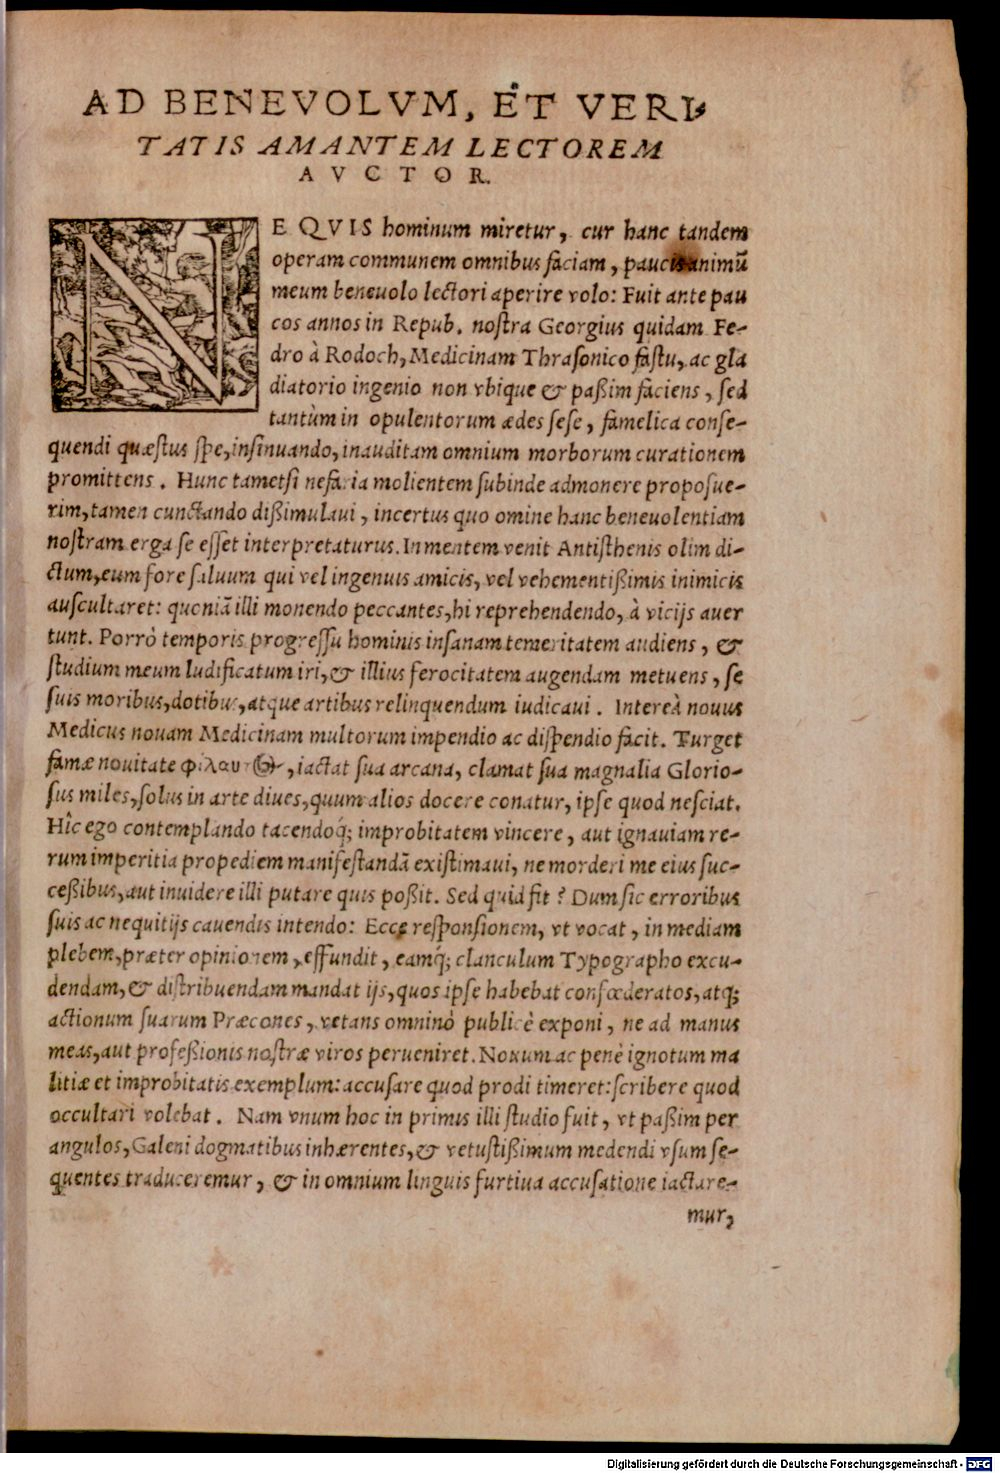 AD BENEVOLVM, ET VERI-
TATIS AMANTEM LECTOREM
AVCTOR.
NE QVIS hominum miretur, cur hanc tandem
operam communem omnibus faciam, paucis animũ
meum beneuolo lectori aperire volo: Fuit ante pau
cos annos in Repub. nostra Georgius quidam Fe-
dro à Rodoch, Medicinam Thrasonico fastu, ac gla
diatorio ingenio non vbique & paßim faciens, sed
tantùm in opulentorum ædes sese, famelica conse-
quendi quæstus spe, insinuando, inauditam omnium morborum curationem
promittens. Hunc tametsi nefaria molientem subinde admonere proposue-
rim, tamen cunctando dißimulaui, incertus quo omine hanc beneuolentiam
nostram erga se esset interpretaturus. In mentem venit Antisthenis olim di-
ctum, eum fore saluum qui vel ingenuis amicis, vel vehementißimis inimicis
auscultaret: quoniã illi monendo peccantes, hi reprehendendo, à vicijs auer
tunt. Porrò temporis progressu hominis insanam temeritatem audiens, &
studium meum ludificatum iri, & illius ferocitatem augendam metuens, se
suis moribus, dotibus, atque artibus relinquendum iudicaui. Intereà nouus
Medicus nouam Medicinam multorum impendio ac dispendio facit. Turget
famæ nouitate φιλαυτ, iactat sua arcana, clamat sua magnalia Glorio-
sus miles, solus in arte diues, quum alios docere conatur, ipse quod nesciat.
Hîc ego contemplando tacendoq́; improbitatem vincere, aut ignauiam re-
rum imperitia propediem manifestandã existimaui, ne morderi me eius suc-
ceßibus, aut inuidere illi putare quis poßit. Sed quid fit? Dum sic erroribus
suis ac nequitijs cauendis intendo: Ecce responsionem, vt vocat, in mediam
plebem, præter opinionem, effundit, eamq́; clanculum Typographo excu-
dendam, & distribuendam mandat ijs, quos ipse habebat confœderatos, atq́;
actionum suarum Præcones, vetans omninò publicè exponi, ne ad manus
meas, aut profeßionis nostræ viros perueniret. Nouum ac penè ignotum ma
litiæ et improbitatis exemplum: accusare quod prodi timeret: scribere quod
occultari volebat. Nam vnum hoc in primis illi studio fuit, vt paßim per
angulos, Galeni dogmatibus inhærentes, & vetustißimum medendi vsum se-
quentes traduceremur, & in omnium linguis furtiua accusatione iactare-
mur,
8
Digitalisierung gefördert durch die Deutsche Forschungsgemeinschaft - DFG